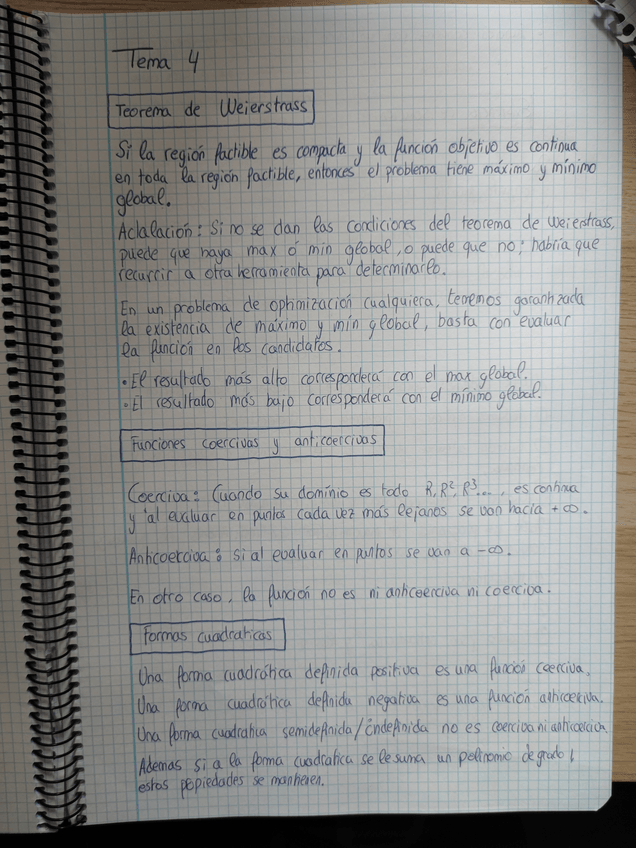 Tema 4
Teorema de Weierstrass
Si la región factible es compacta y la función objetivo es continua
en toda la región factible, entonces el problema tiene máximo y mínimo
global.
Aclalación: Si no se dan las condiciones del teorema de Weierstrass,
puede que haya max ó min global, o puede que no; habría que
recurrir a otra herramienta para determinarlo.
En un problema de optimización cualquiera, tenemos garantizada
la existencia de máximo y mín global, basta con evaluar
la función en los candidatos.
• El resultado más alto corresponderá con el max global.
• El resultado más bajo corresponderá con el mínimo global.
Funciones coercivas y anticoercivas
Coerciva: Cuando su dominio es todo R, R², R³..., es continua
y al evaluar en puntos cada vez más lejanos se van hacia +∞.
Anticoerciva: si al evaluar en puntos se van a -∞.
En otro caso, la función no es ni anticoerciva ni coerciva.
Formas cuadraticas
Una forma cuadrática definida positiva es una función coerciva.
Una forma cuadrática definida negativa es una función anticoerciva.
Una forma cuadratica semidefinida/indefinida no es coerciva ni anticoerciva.
Ademas si a la forma cuadratica se le suma un polinomio de grado 1
estas propiedades se mantienen.